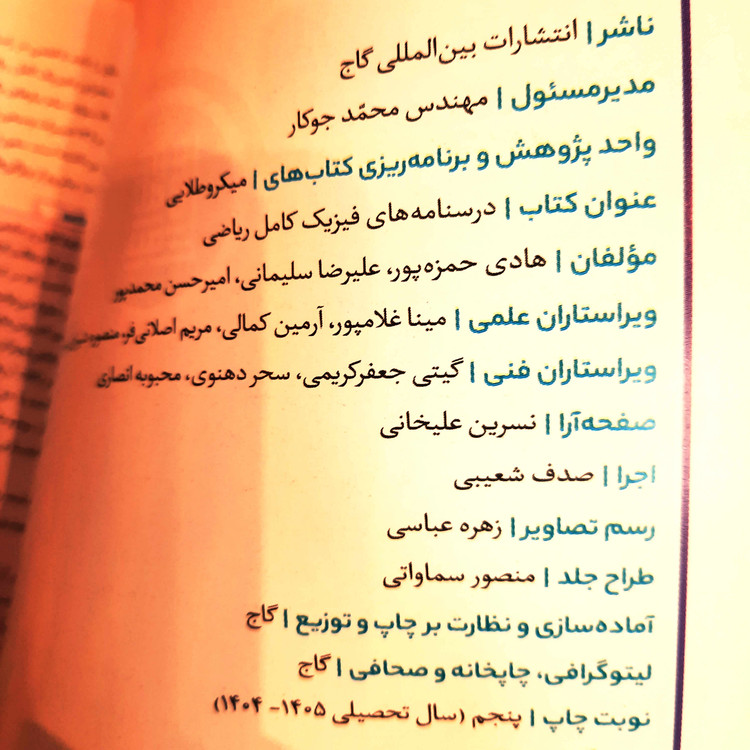 ناشر | انتشارات بین‌المللی گاج
مدیرمسئول | مهندس محمّد جوکار
واحد پژوهش و برنامه‌ریزی کتاب‌های | میکروطلایی
عنوان کتاب | درسنامه‌های فیزیک کامل ریاضی
مؤلفان | هادی حمزه‌پور، علیرضا سلیمانی، امیرحسن محمدپور
ویراستاران علمی | مینا غلامپور، آرمین کمالی، مریم اصلانی‌فر، منصوره
ویراستاران فنی | گیتی جعفرکریمی، سحر دهنوی، محبوبه انصاری
صفحه‌آرا | نسرین علیخانی
اجرا | صدف شعیبی
رسم تصاویر | زهره عباسی
طراح جلد | منصور سماواتی
آماده‌سازی و نظارت بر چاپ و توزیع | گاج
لیتوگرافی، چاپخانه و صحافی | گاج
نوبت چاپ | پنجم (سال تحصیلی ۱۴۰۵- ۱۴۰۴)